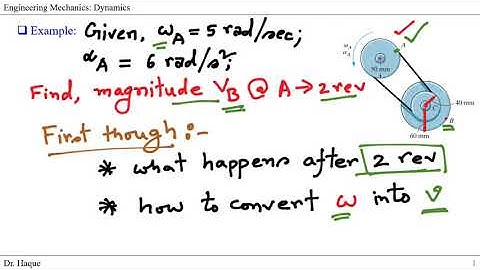 Engineering Mechanics: Dynamics
❑ Example: Given, ωA = 5 rad/sec;
αA = 6 rad/s²;
Find, magnitude VB @ A → 2 rev
First though :-
* what happens after 2 rev
* how to convert ω into v
A
50 mm
40 mm
B
60 mm
Dr. Haque
1